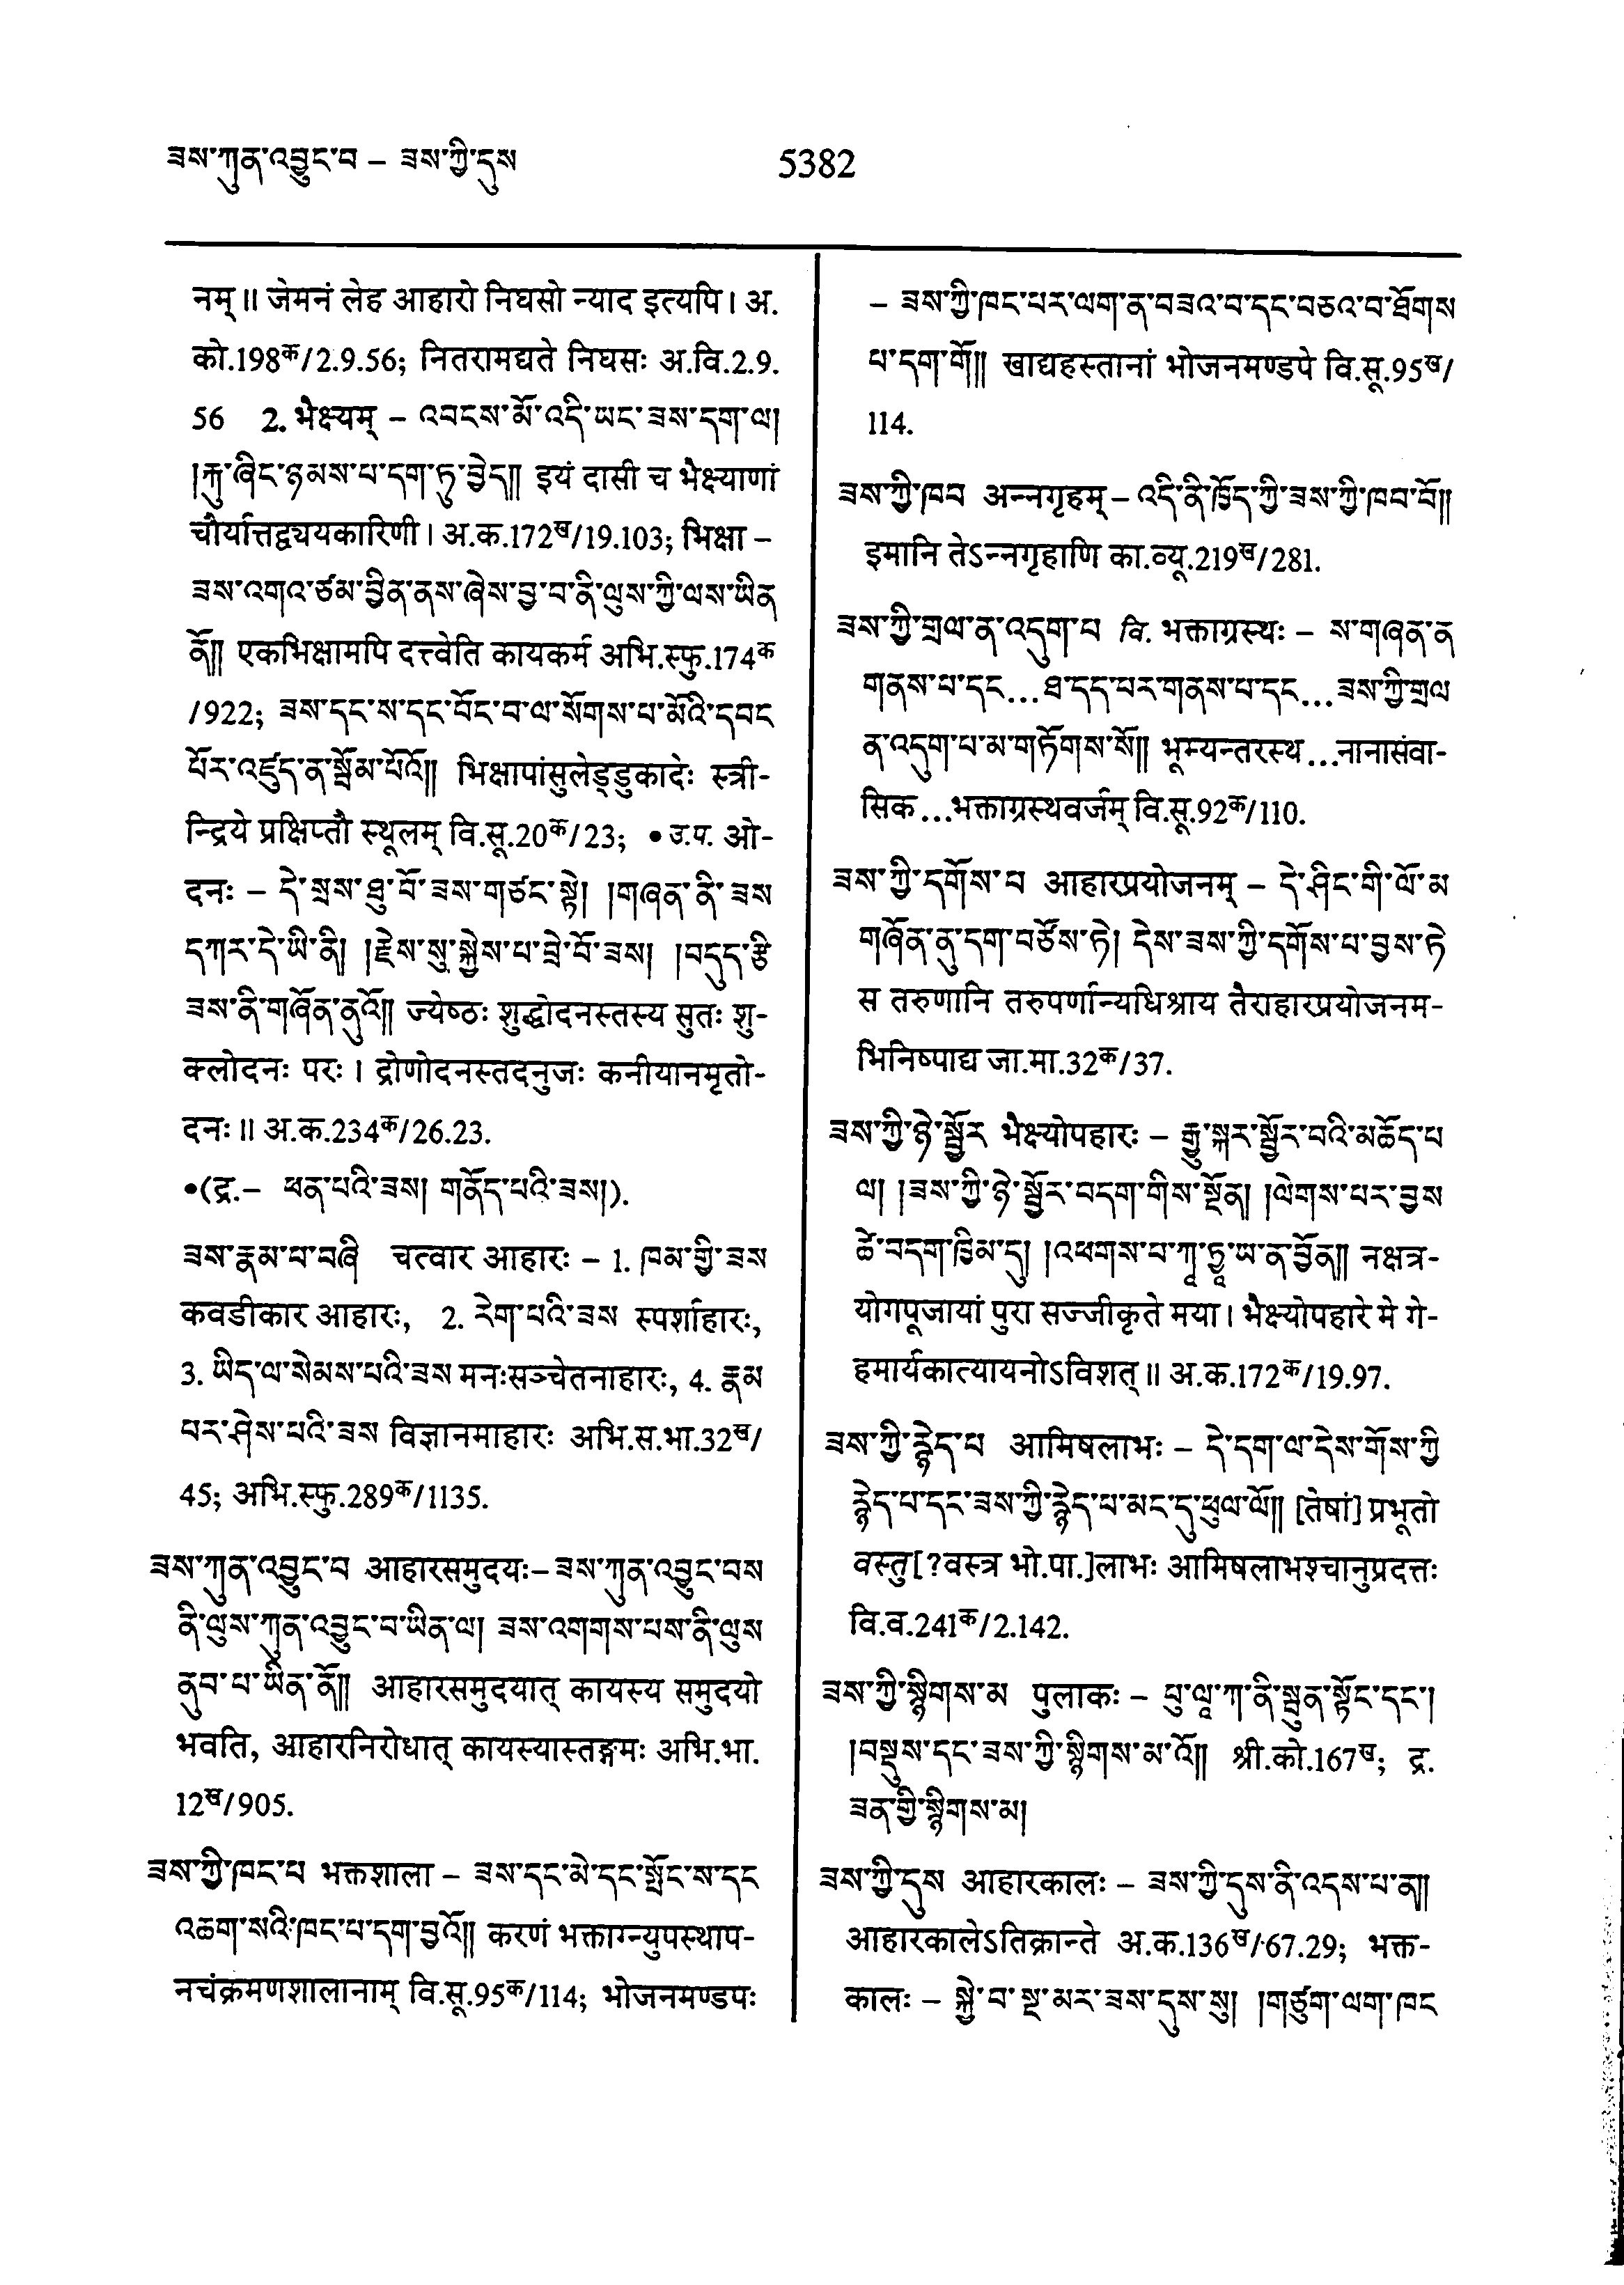 ཟས་ཀུན་འབྱུང་བ – ཟས་ཀྱི་དུས
5382
नम्॥ जेमनं लेह आहारो निघसो न्याद इत्यपि। अ.
को.198क/2.9.56; नितरामद्यते निघसः अ.वि.2.9.
56 2. भैक्ष्यम् – འབངས་མོ་འདི་ཡང་ཟས་དག་ལ།
།རྐུ་ཞིང་ཉམས་པ་དག་ཏུ་བྱེད།། इयं दासी च भैक्ष्याणां
चौर्यात्तद्व्ययकारिणी। अ.क.172ख/19.103; भिक्षा –
ཟས་འགའ་ཙམ་བྱིན་ནས་ཞེས་བྱ་བ་ནི་ལུས་ཀྱི་ལས་ཡིན
ནོ།། एकभिक्षामपि दत्त्वेति कायकर्म अभि.स्फु.174क
/922; ཟས་དང་ས་དང་བོང་བ་ལ་སོགས་པ་མོའི་དབང
པོར་འཛུད་ན་སྦོམ་པོའོ།། भिक्षापांसुलेड्डुकादेः स्त्री-
न्द्रिये प्रक्षिप्तौ स्थूलम् वि.सू.20क/23; • उ.प. ओ-
दनः – དེ་སྲས་ཐུ་བོ་ཟས་གཙང་སྟེ། །གཞན་ནི་ཟས
དཀར་དེ་ཡི་ནི། །རྗེས་སུ་སྐྱེས་པ་བྲེ་བོ་ཟས། །བདུད་རྩི
ཟས་ནི་གཞོན་ནུའོ།། ज्येष्ठः शुद्धोदनस्तस्य सुतः शु-
क्लोदनः परः। द्रोणोदनस्तदनुजः कनीयानमृतो-
दनः॥ अ.क.234क/26.23.
•(द्र.– ཕན་པའི་ཟས། གནོད་པའི་ཟས།).
ཟས་རྣམ་པ་བཞི चत्वार आहारः – 1. ཁམ་གྱི་ཟས
कवडीकार आहारः, 2. རེག་པའི་ཟས स्पर्शाहारः,
3. ཡིད་ལ་སེམས་པའི་ཟས मनःसञ्चेतनाहारः, 4. རྣམ
པར་ཤེས་པའི་ཟས विज्ञानमाहारः अभि.स.भा.32ख/
45; अभि.स्फु.289क/1135.
ཟས་ཀུན་འབྱུང་བ आहारसमुदयः– ཟས་ཀུན་འབྱུང་བས
ནི་ལུས་ཀུན་འབྱུང་བ་ཡིན་ལ། ཟས་འགགས་པས་ནི་ལུས
ནུབ་པ་ཡིན་ནོ།། आहारसमुदयात् कायस्य समुदयो
भवति, आहारनिरोधात् कायस्यास्तङ्गमः अभि.भा.
12ख/905.
ཟས་ཀྱི་ཁང་པ भक्तशाला – ཟས་དང་མེ་དང་སྤོང་ས་དང
འཆག་སའི་ཁང་པ་དག་བྱའོ།། करणं भक्ताग्न्युपस्थाप-
नचंक्रमणशालानाम् वि.सू.95क/114; भोजनमण्डपः
– ཟས་ཀྱི་ཁང་པར་ལག་ན་བཟའ་བ་དང་བཅའ་བ་ཐོགས
པ་དག་གོ།། खाद्यहस्तानां भोजनमण्डपे वि.सू.95ख/
114.
ཟས་ཀྱི་ཁབ अन्नगृहम् – འདི་ནི་ཁྱོད་ཀྱི་ཟས་ཀྱི་ཁབ་བོ།།
इमानि तेऽन्नगृहाणि का.व्यू.219ख/281.
ཟས་ཀྱི་གྲལ་ན་འདུག་པ वि. भक्ताग्रस्थः – ས་གཞན་ན
གནས་པ་དང...ཐ་དད་པར་གནས་པ་དང...ཟས་ཀྱི་གྲལ
ན་འདུག་པ་མ་གཏོགས་སོ།། भूम्यन्तरस्थ...नानासंवा-
सिक...भक्ताग्रस्थवर्जम् वि.सू.92क/110.
ཟས་ཀྱི་དགོས་པ आहारप्रयोजनम् – དེ་ཤིང་གི་ལོ་མ
གཞོན་ནུ་དག་བཙོས་ཏེ། དེས་ཟས་ཀྱི་དགོས་པ་བྱས་ཏེ
स तरुणानि तरुपर्णान्यधिश्राय तैराहारप्रयोजनम-
भिनिष्पाद्य जा.मा.32क/37.
ཟས་ཀྱི་ཉེ་སྦྱོར भैक्ष्योपहारः – རྒྱུ་སྐར་སྦྱོར་བའི་མཆོད་པ
ལ། །ཟས་ཀྱི་ཉེ་སྦྱོར་བདག་གིས་སྔོན། །ལེགས་པར་བྱས
ཚེ་བདག་ཁྱིམ་དུ། །འཕགས་པ་ཀཱ་ཏྱཱ་ཡ་ན་བྱོན།། नक्षत्र-
योगपूजायां पुरा सज्जीकृते मया। भैक्ष्योपहारे मे गे-
हमार्यकात्यायनोऽविशत्॥ अ.क.172क/19.97.
ཟས་ཀྱི་རྙེད་པ आमिषलाभः – དེ་དག་ལ་དེས་གོས་ཀྱི
རྙེད་པ་དང་ཟས་ཀྱི་རྙེད་པ་མང་དུ་ཕུལ་ལོ།། [तेषां] प्रभूतो
वस्तु[?वस्त्र भो.पा.]लाभः आमिषलाभश्चानुप्रदत्तः
वि.व.241क/2.142.
ཟས་ཀྱི་སྙིགས་མ पुलाकः – པུ་ལཱ་ཀ་ནི་སྦུན་སྟོང་དང་།
།བསྡུས་དང་ཟས་ཀྱི་སྙིགས་མ་འོ།། श्री.को.167ख; द्र.
ཟན་གྱི་སྙིགས་མ།
ཟས་ཀྱི་དུས आहारकालः – ཟས་ཀྱི་དུས་ནི་འདས་པ་ན།།
आहारकालेऽतिक्रान्ते अ.क.136ख/67.29; भक्त-
कालः – སྐྱེ་བ་སྔ་མར་ཟས་དུས་སུ། །གཙུག་ལག་ཁང